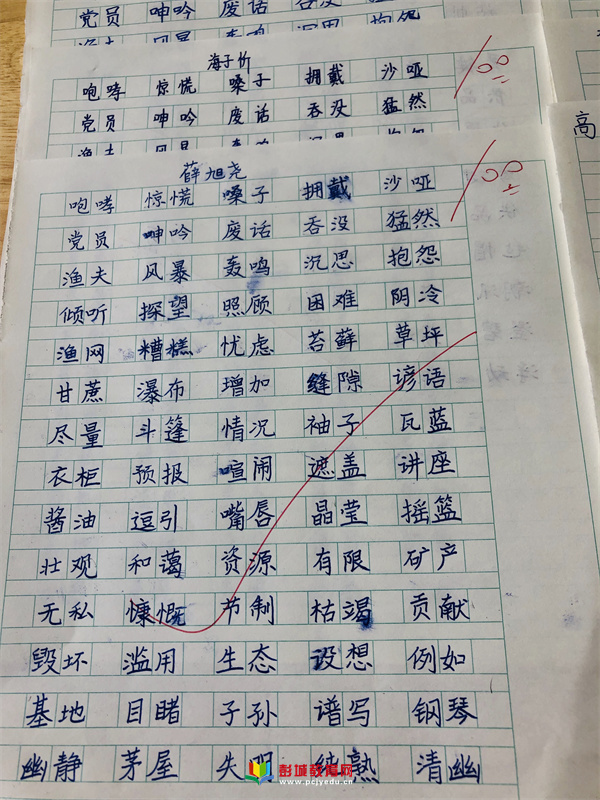 党员 呻吟 废话 吞没
海子竹
咆哮 惊慌 嗓子 拥戴 沙哑
党员 呻吟 废话 吞没 猛然
100
薛旭尧
咆哮 惊慌 嗓子 拥戴 沙哑
党员 呻吟 废话 吞没 猛然
渔夫 风暴 轰鸣 沉思 抱怨
倾听 探望 照顾 困难 阴冷
渔网 糟糕 忧虑 苔藓 草坪
甘蔗 瀑布 增加 缝隙 谚语
尽量 斗篷 情况 袖子 瓦蓝
衣柜 预报 喧闹 遮盖 讲座
酱油 逗引 嘴唇 晶莹 摇篮
壮观 和蔼 资源 有限 矿产
无私 慷慨 节制 枯竭 贡献
毁坏 滥用 生态 设想 例如
基地 目睹 子孙 谱写 钢琴
幽静 茅屋 失明 纯熟 清幽
100
高
彭城教育网
www.pcjyedu.cn